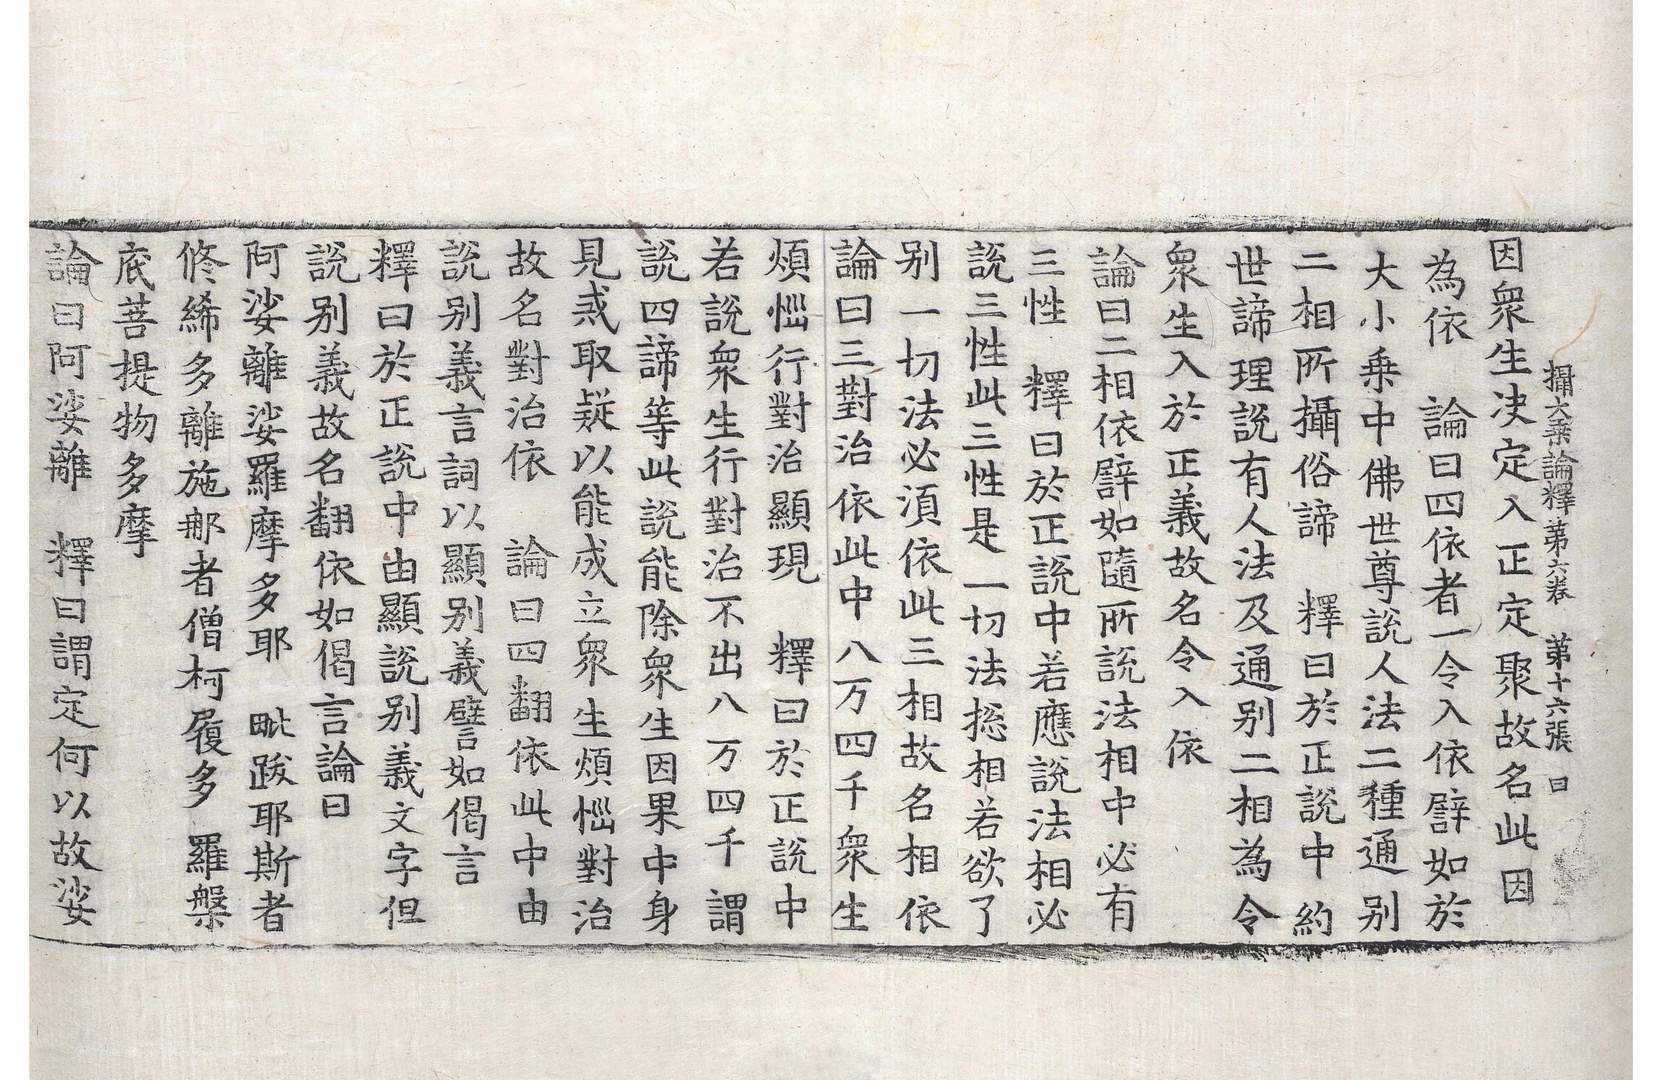 因衆生决定入正定聚故名此因
攝大乗論釋第六卷 第十六張 日
為依 論曰四依者一令入依譬如於
大小乗中佛世尊説人法二種通别
二相所攝俗諦 釋曰於正説中約
世諦理説有人法及通别二相為令
衆生入於正義故名令入依
論曰二相依譬如隨所説法相中必有
三性 釋曰於正説中若應説法相必
説三性此三性是一切法捴相若欲了
别一切法必須依此三相故名相依
論曰三對治依此中八万四千衆生
煩惱行對治顯現 釋曰於正説中
若説衆生行對治不出八万四千謂
説四諦等此説能除衆生因果中身
見或取疑以能成立衆生煩惱對治
故名對治依 論曰四翻依此中由
説别義言詞以顯别義譬如偈言
釋曰於正説中由顯説别義文字但
説别義故名翻依如偈言論曰
阿娑離娑羅摩多耶 毗跋耶斯者
修絺多離施那者僧柯履多 羅槃
底菩提物多摩
論曰阿娑離 釋曰謂定何以故娑